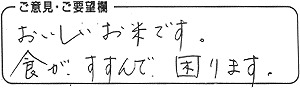 ご意見・ご要望欄
おいしいお米です。
食が、すすんで 困ります。